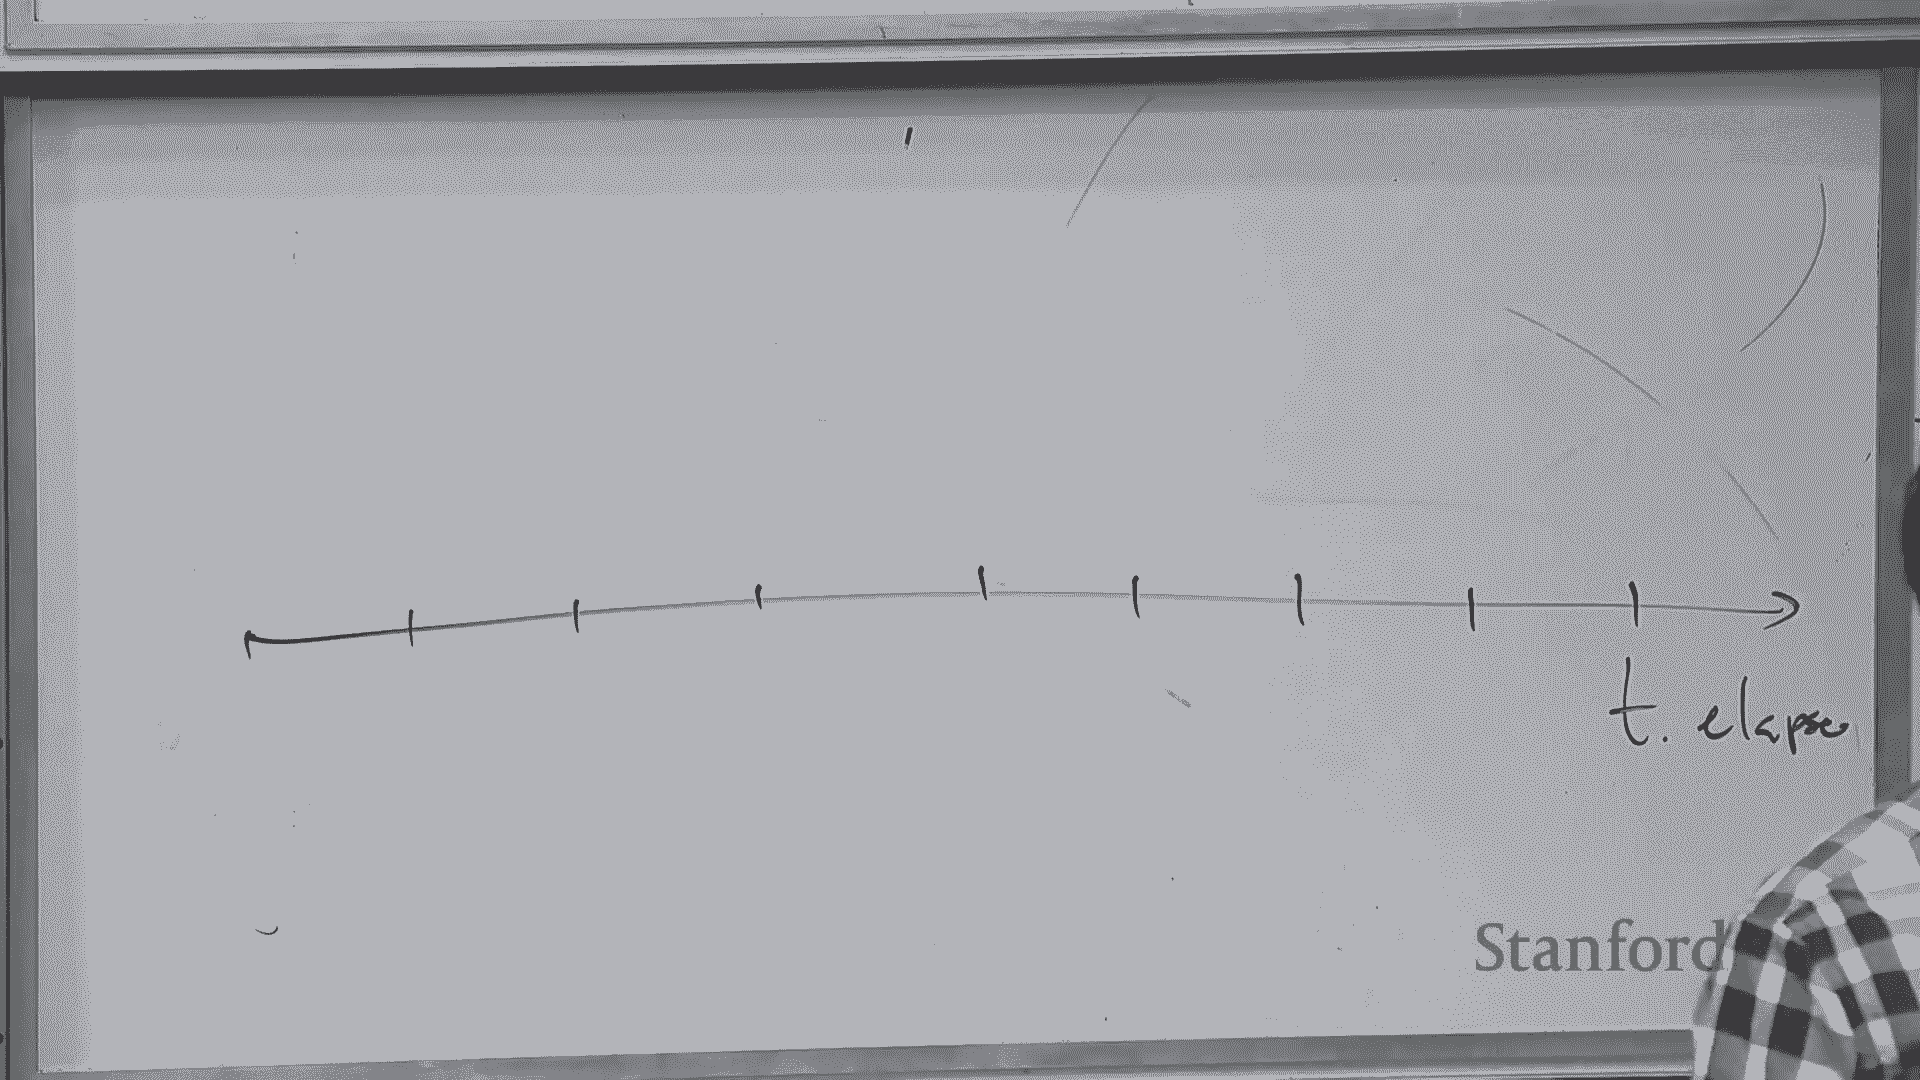 t. elapse
Stanford